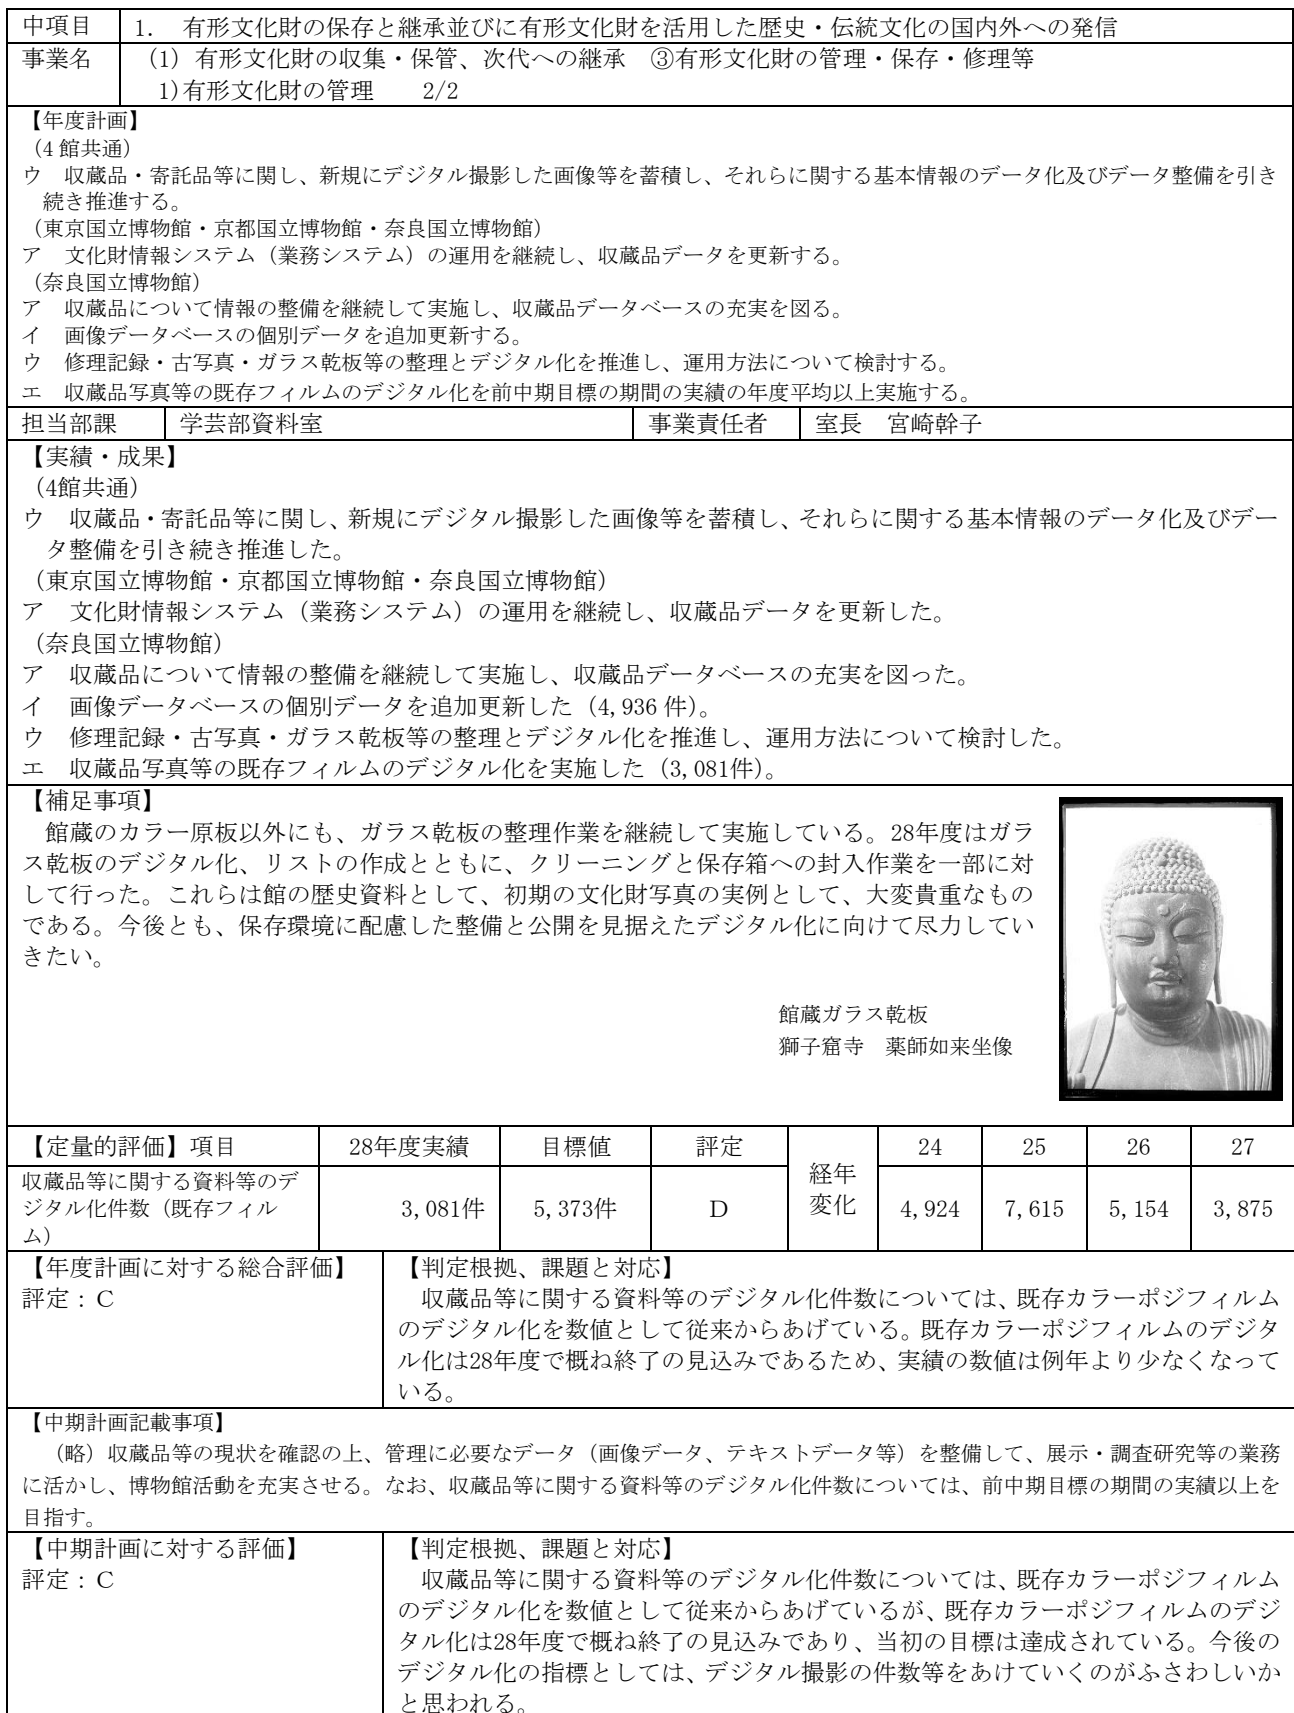 中項目 1. 有形文化財の保存と継承並びに有形文化財を活用した歴史・伝統文化の国内外への発信
事業名 (1) 有形文化財の収集・保管、次代への継承 ③有形文化財の管理・保存・修理等
1)有形文化財の管理 2/2
【年度計画】
(4館共通)
ウ 収蔵品・寄託品等に関し、新規にデジタル撮影した画像等を蓄積し、それらに関する基本情報のデータ化及びデータ整備を引き
続き推進する。
(東京国立博物館・京都国立博物館・奈良国立博物館)
ア 文化財情報システム(業務システム)の運用を継続し、収蔵品データを更新する。
(奈良国立博物館)
ア 収蔵品について情報の整備を継続して実施し、収蔵品データベースの充実を図る。
イ 画像データベースの個別データを追加更新する。
ウ 修理記録・古写真・ガラス乾板等の整理とデジタル化を推進し、運用方法について検討する。
エ 収蔵品写真等の既存フィルムのデジタル化を前中期目標の期間の実績の年度平均以上実施する。
担当部課 学芸部資料室 事業責任者 室長 宮崎幹子
【実績・成果】
(4館共通)
ウ 収蔵品・寄託品等に関し、新規にデジタル撮影した画像等を蓄積し、それらに関する基本情報のデータ化及びデー
タ整備を引き続き推進した。
(東京国立博物館・京都国立博物館・奈良国立博物館)
ア 文化財情報システム(業務システム)の運用を継続し、収蔵品データを更新した。
(奈良国立博物館)
ア 収蔵品について情報の整備を継続して実施し、収蔵品データベースの充実を図った。
イ 画像データベースの個別データを追加更新した(4,936件)。
ウ 修理記録・古写真・ガラス乾板等の整理とデジタル化を推進し、運用方法について検討した。
エ 収蔵品写真等の既存フィルムのデジタル化を実施した(3,081件)。
【補足事項】
館蔵のカラー原板以外にも、ガラス乾板の整理作業を継続して実施している。28年度はガラ
ス乾板のデジタル化、リストの作成とともに、クリーニングと保存箱への封入作業を一部に対
して行った。これらは館の歴史資料として、初期の文化財写真の実例として、大変貴重なもの
である。今後とも、保存環境に配慮した整備と公開を見据えたデジタル化に向けて尽力してい
きたい。
館蔵ガラス乾板
獅子窟寺 薬師如来坐像
【定量的評価】項目 28年度実績 目標値 評定 経年変化 24 25 26 27
収蔵品等に関する資料等のデ
ジタル化件数(既存フィル
ム) 3,081件 5,373件 D 4,924 7,615 5,154 3,875
【年度計画に対する総合評価】
評定:C
【判定根拠、課題と対応】
収蔵品等に関する資料等のデジタル化件数については、既存カラーポジフィルム
のデジタル化を数値として従来からあげている。既存カラーポジフィルムのデジタ
ル化は28年度で概ね終了の見込みであるため、実績の数値は例年より少なくなって
いる。
【中期計画記載事項】
(略)収蔵品等の現状を確認の上、管理に必要なデータ(画像データ、テキストデータ等)を整備して、展示・調査研究等の業務
に活かし、博物館活動を充実させる。なお、収蔵品等に関する資料等のデジタル化件数については、前中期目標の期間の実績以上を
目指す。
【中期計画に対する評価】
評定:C
【判定根拠、課題と対応】
収蔵品等に関する資料等のデジタル化件数については、既存カラーポジフィルム
のデジタル化を数値として従来からあげているが、既存カラーポジフィルムのデジ
タル化は28年度で概ね終了の見込みであり、当初の目標は達成されている。今後の
デジタル化の指標としては、デジタル撮影の件数等をあけていくのがふさわしいか
と思われる。